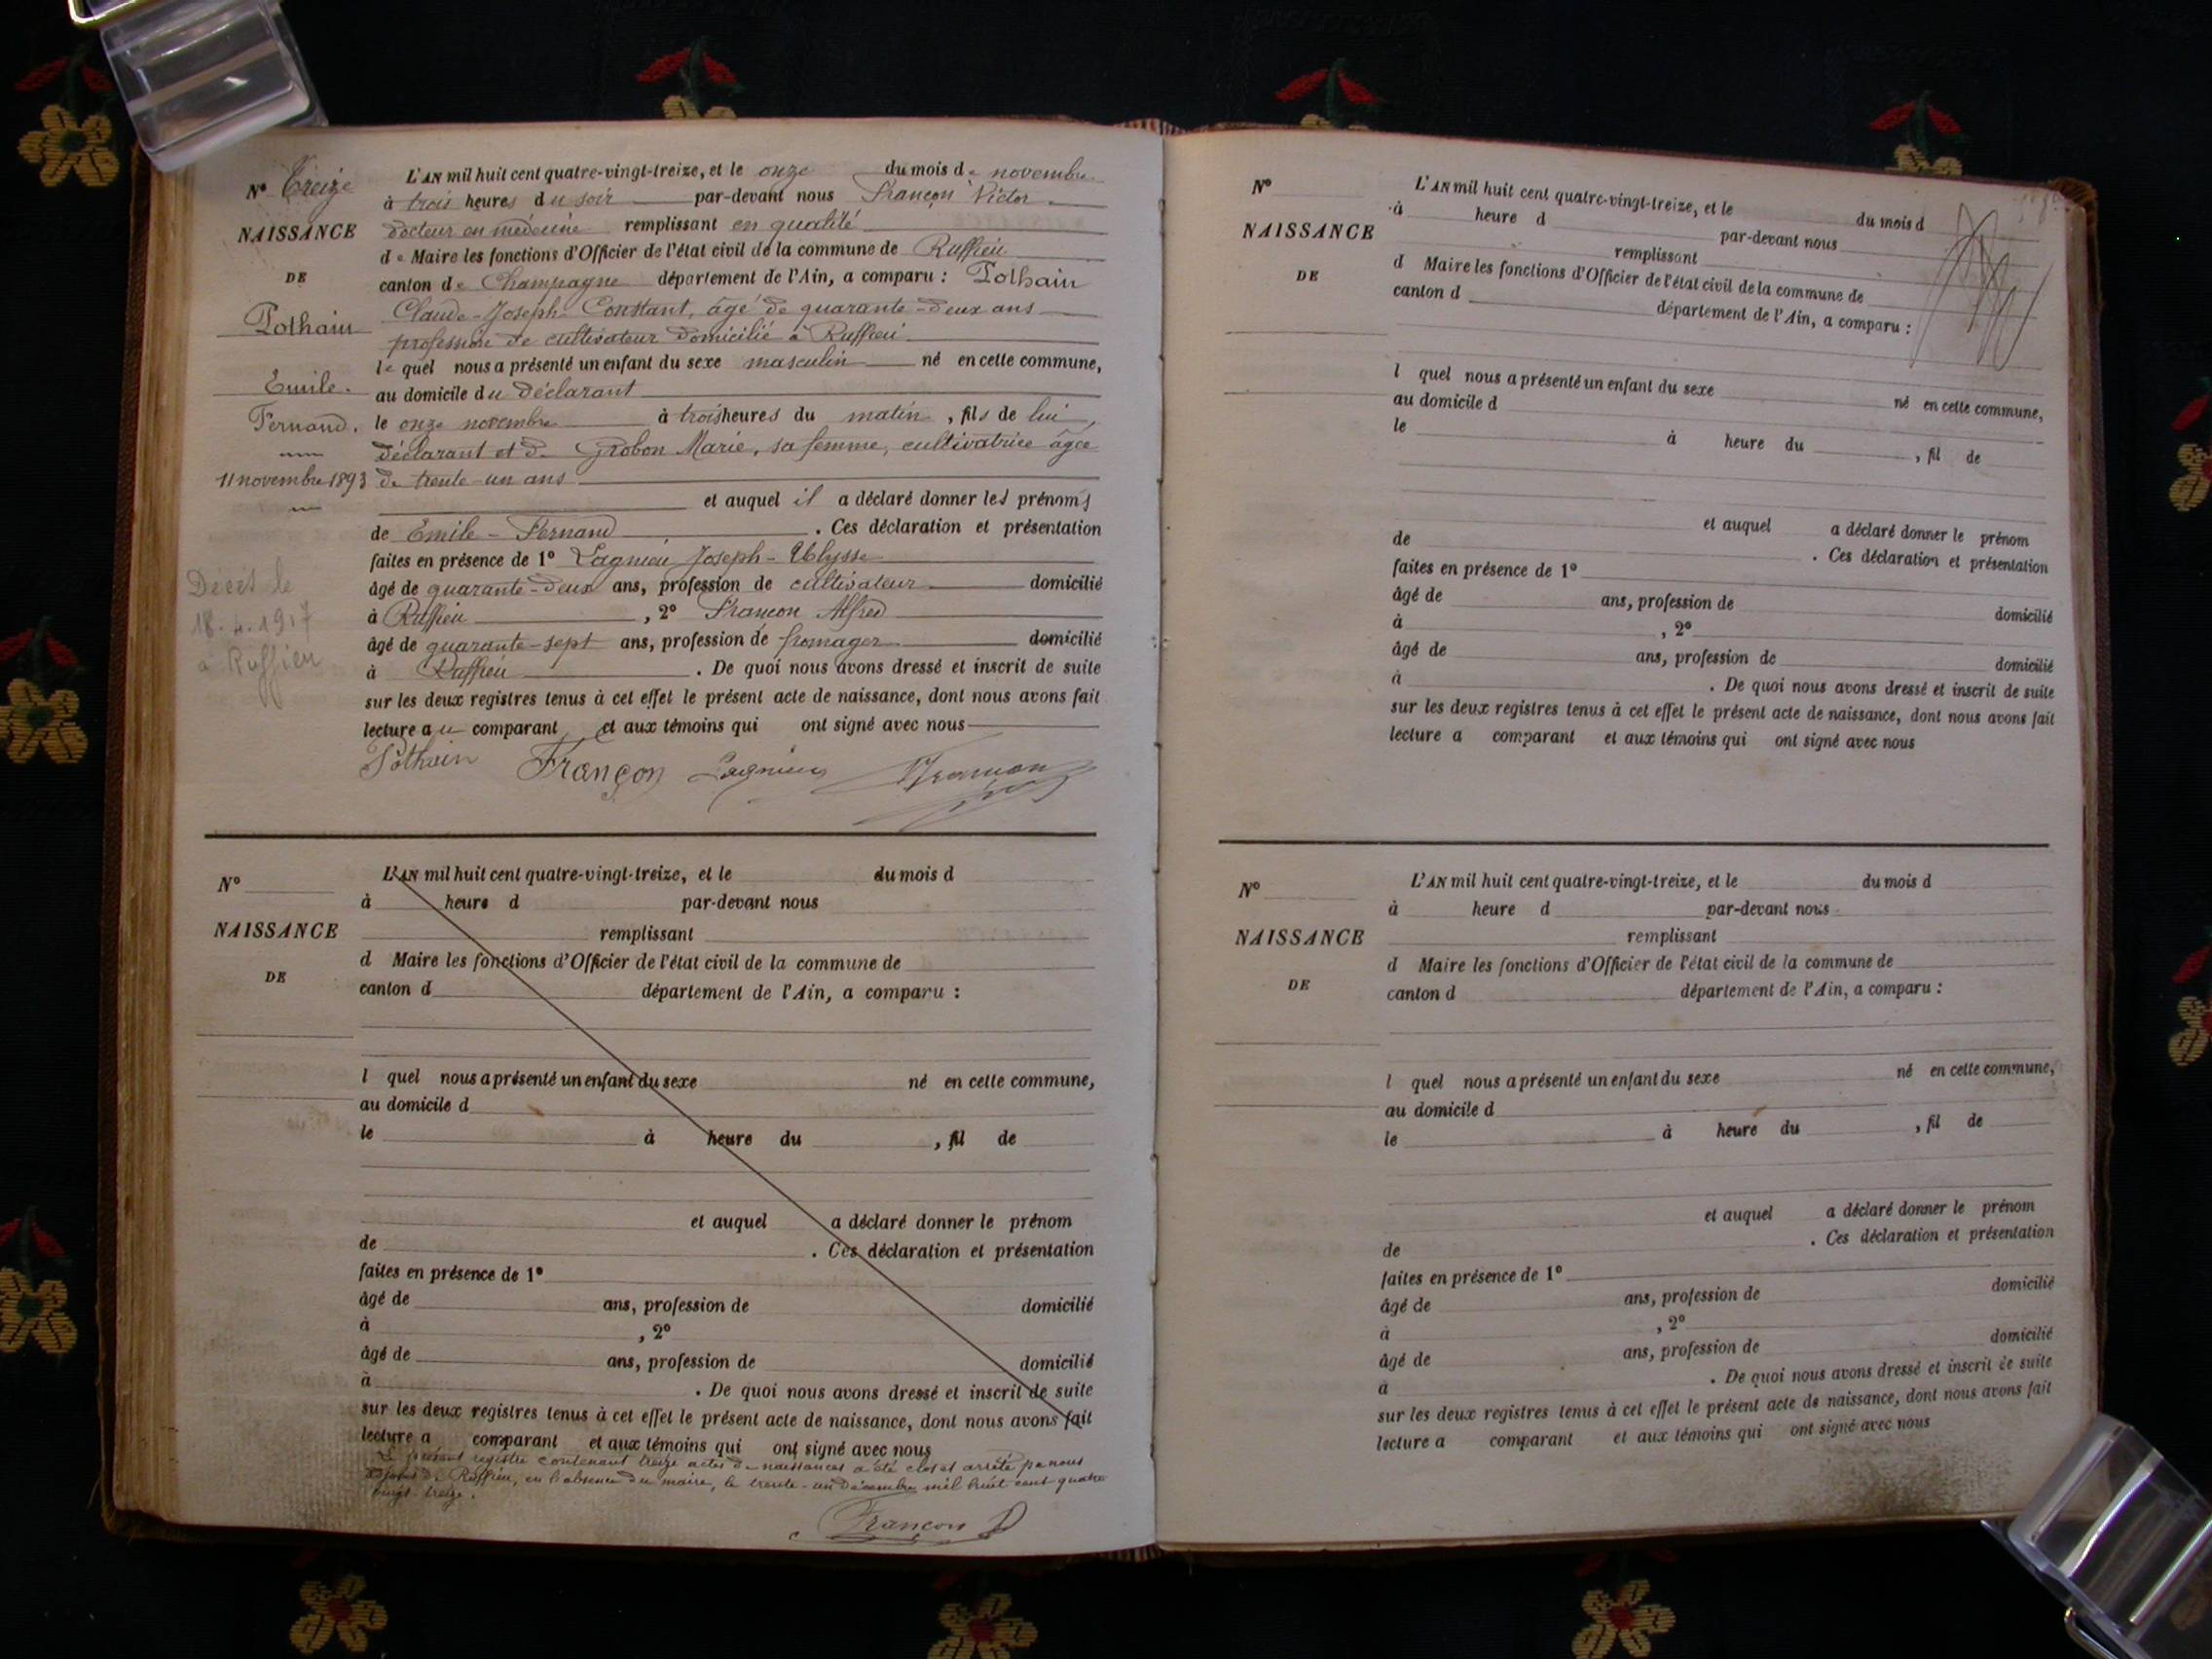 N° Treize
NAISSANCE
DE
Pothain
Emile.
Fernand.
11 novembre 1893
Décès le
18.4.1917
à Ruffieu
L'AN mil huit cent quatre-vingt-treize, et le onze du mois de novembre
à trois heures du soir par-devant nous Françon Victor
docteur en médecine remplissant en qualité
de Maire les fonctions d'Officier de l'état civil de la commune de Ruffieu
canton de Champagne département de l'Ain, a comparu : Pothain
Claude-Joseph Constant, âgé de quarante-deux ans
profession de cultivateur domicilié à Ruffieu
le quel nous a présenté un enfant du sexe masculin né en cette commune,
au domicile du déclarant
le onze novembre à trois heures du matin, fils de lui,
déclarant et de Grobon Marie, sa femme, cultivatrice âgée
de trente-un ans
et auquel il a déclaré donner les prénoms
de Emile-Fernand. Ces déclaration et présentation
faites en présence de 1° Lagnieu Joseph-Ulysse
âgé de quarante-deux ans, profession de cultivateur domicilié
à Ruffieu, 2° Françon Alfred
âgé de quarante-sept ans, profession de fromager domicilié
à Ruffieu. De quoi nous avons dressé et inscrit de suite
sur les deux registres tenus à cet effet le présent acte de naissance, dont nous avons fait
lecture au comparant et aux témoins qui ont signé avec nous
Pothain Françon Lagnieu Françon
N°
NAISSANCE
DE
L'AN mil huit cent quatre-vingt-treize, et le du mois d
à heure d par-devant nous
remplissant
d Maire les fonctions d'Officier de l'état civil de la commune de
canton d département de l'Ain, a comparu :
l quel nous a présenté un enfant du sexe né en cette commune,
au domicile d
le à heure du , fil de
et auquel a déclaré donner le prénom
de . Ces déclaration et présentation
faites en présence de 1°
âgé de ans, profession de domicilié
à , 2°
âgé de ans, profession de domicilié
à . De quoi nous avons dressé et inscrit de suite
sur les deux registres tenus à cet effet le présent acte de naissance, dont nous avons fait
lecture a comparant et aux témoins qui ont signé avec nous
Le présent registre contenant treize actes de naissances a été clos et arrêté par nous
adjoint de Ruffieu, en l'absence du maire, le trente-un Décembre mil huit cent quatre
vingt-treize.
Françon
N°
NAISSANCE
DE
L'AN mil huit cent quatre-vingt-treize, et le du mois d
à heure d par-devant nous
remplissant
d Maire les fonctions d'Officier de l'état civil de la commune de
canton d département de l'Ain, a comparu :
l quel nous a présenté un enfant du sexe né en cette commune,
au domicile d
le à heure du , fil de
et auquel a déclaré donner le prénom
de . Ces déclaration et présentation
faites en présence de 1°
âgé de ans, profession de domicilié
à , 2°
âgé de ans, profession de domicilié
à . De quoi nous avons dressé et inscrit de suite
sur les deux registres tenus à cet effet le présent acte de naissance, dont nous avons fait
lecture a comparant et aux témoins qui ont signé avec nous
N°
NAISSANCE
DE
L'AN mil huit cent quatre-vingt-treize, et le du mois d
à heure d par-devant nous
remplissant
d Maire les fonctions d'Officier de l'état civil de la commune de
canton d département de l'Ain, a comparu :
l quel nous a présenté un enfant du sexe né en cette commune,
au domicile d
le à heure du , fil de
et auquel a déclaré donner le prénom
de . Ces déclaration et présentation
faites en présence de 1°
âgé de ans, profession de domicilié
à , 2°
âgé de ans, profession de domicilié
à . De quoi nous avons dressé et inscrit de suite
sur les deux registres tenus à cet effet le présent acte de naissance, dont nous avons fait
lecture a comparant et aux témoins qui ont signé avec nous